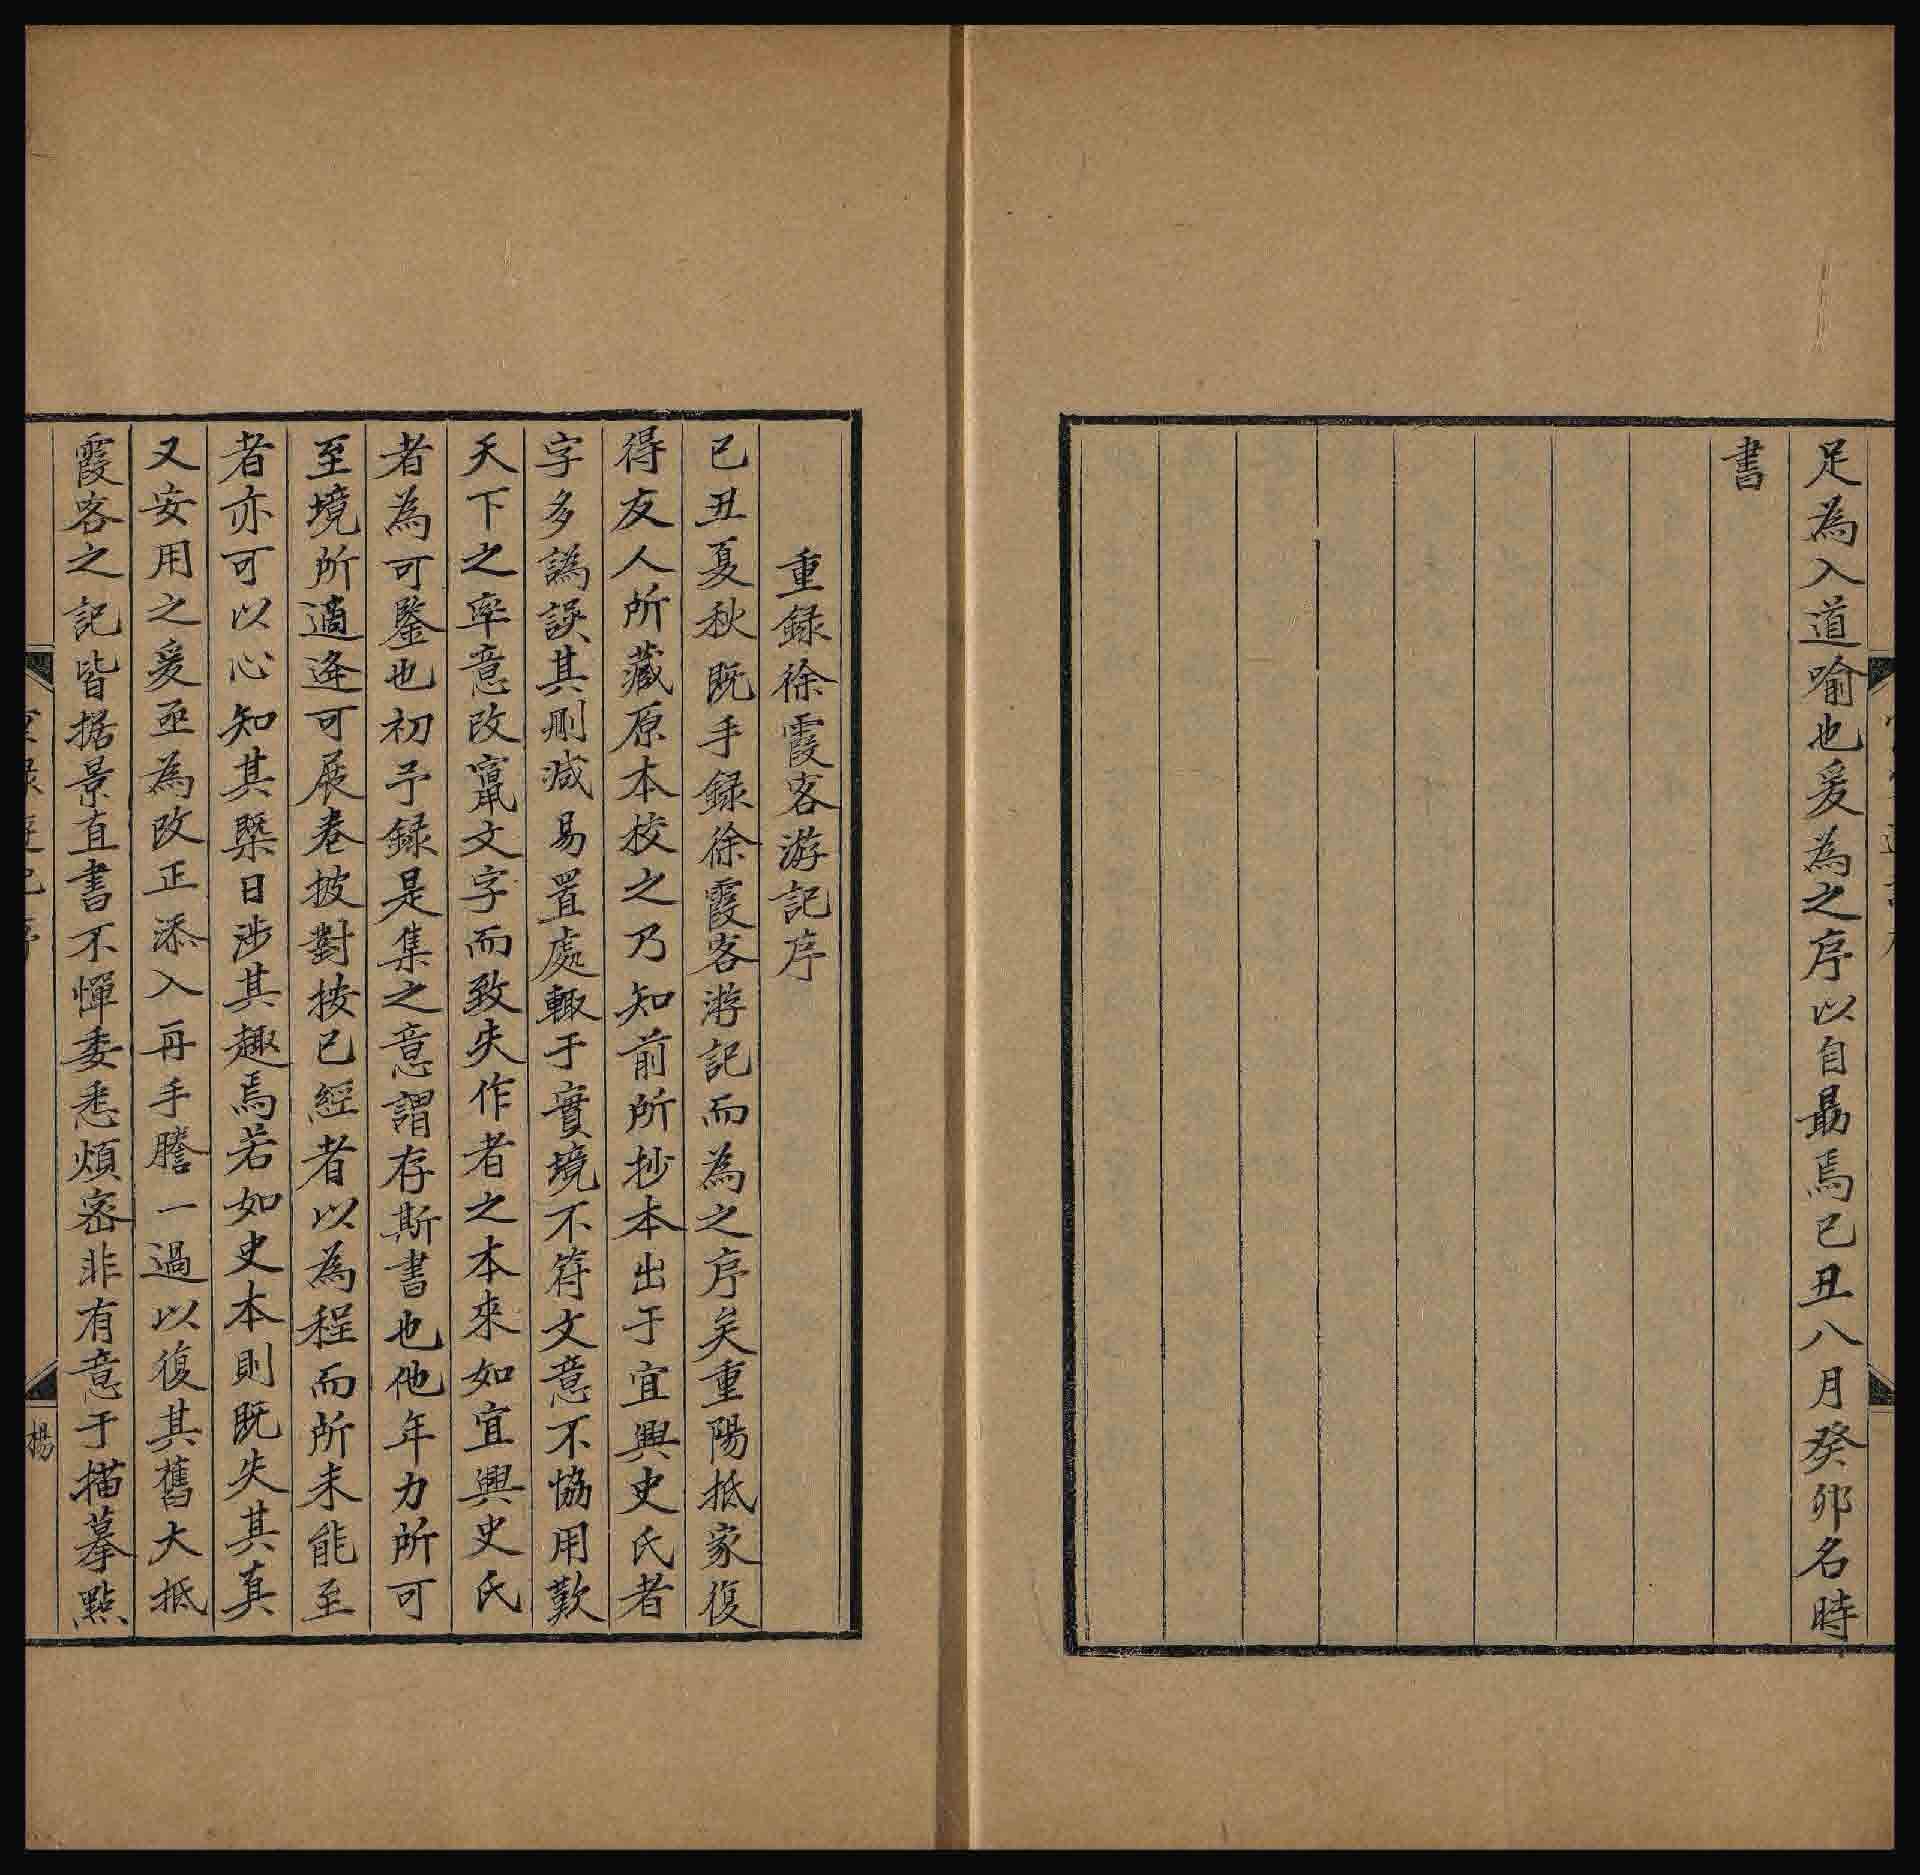 足為入道喻也爰為之序以自勗焉己丑八月癸卯名時
書
重録徐霞客游記序
己丑夏秋既手録徐霞客游記而為之序矣重陽抵家復
得友人所藏原本校之乃知前所抄本出于宜興史氏者
字多譌誤其刪減易置處輙于實境不符文意不協用歎
天下之率意改竄文字而致失作者之本來如宜興史氏
者為可鑒也初予録是集之意謂存斯書也他年力所可
至境所適逢可展卷披對按已經者以為程而所未能至
者亦可以心知其槩日涉其趣焉若如史本則既失其真
又安用之爰亟為改正添入再手謄一過以復其舊大抵
霞客之記皆据景直書不憚委悉煩密非有意于描摹點
楊